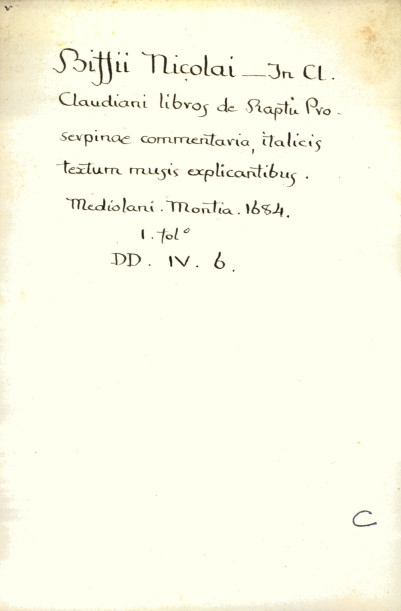 Biffii Nicolai — In Cl.
Claudiani libros de Raptu Pro-
serpinae commentaria, italicis
textum musis explicantibus.
Mediolani. Montia. 1684.
1. fol°
DD. IV. 6.
C